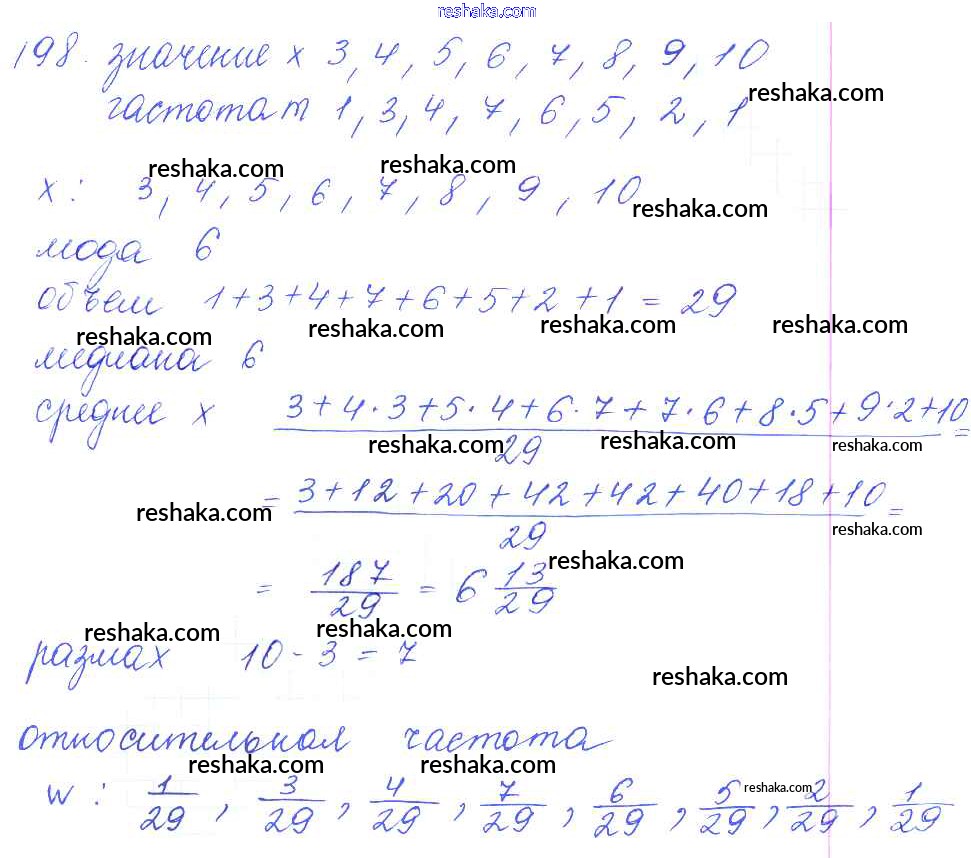 reshaka.com
198. значение x 3, 4, 5, 6, 7, 8, 9, 10
reshaka.com
частота m 1, 3, 4, 7, 6, 5, 2, 1
reshaka.com reshaka.com
x: 3, 4, 5, 6, 7, 8, 9, 10
reshaka.com
мода 6
объем 1+3+4+7+6+5+2+1 = 29
reshaka.com reshaka.com reshaka.com reshaka.com
медиана 6
среднее x 3+4·3+5·4+6·7+7·6+8·5+9·2+10 =
reshaka.com reshaka.com reshaka.com
29
= 3+12+20+42+42+40+18+10 =
reshaka.com reshaka.com
29
reshaka.com
= 187/29 = 6 13/29
reshaka.com reshaka.com
размах 10-3=7
reshaka.com
относительная частота
reshaka.com reshaka.com reshaka.com
w: 1/29, 3/29, 4/29, 7/29, 6/29, 5/29, 2/29, 1/29